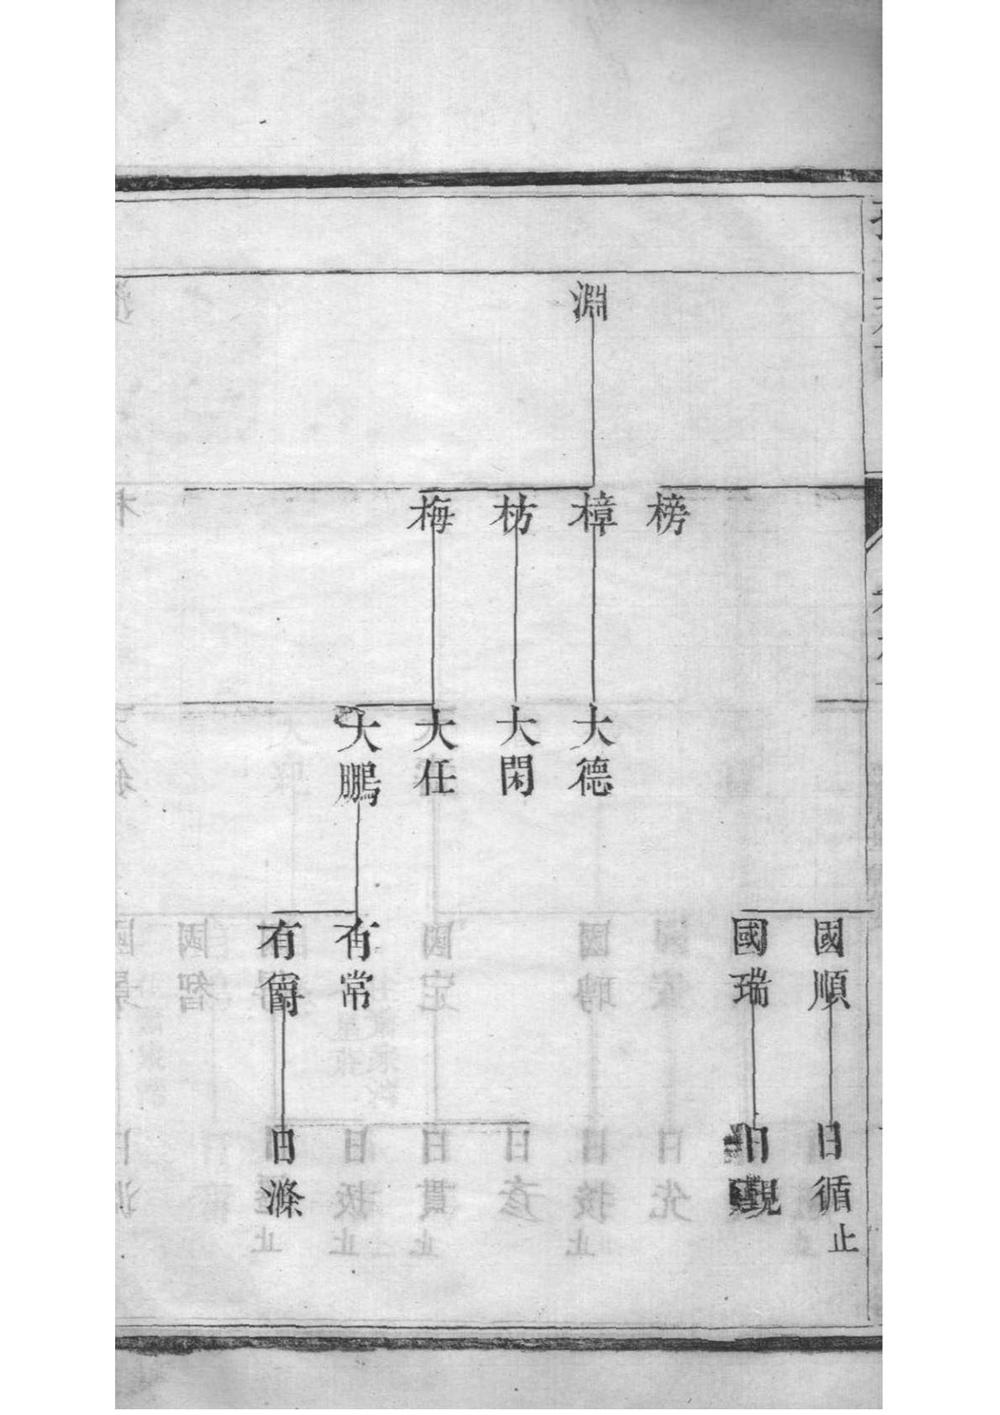 淵
榜
樟
枋
梅
大德
大閑
大任
大鵬
國順
國瑞
有常
有爵
日循止
日觀
日滌